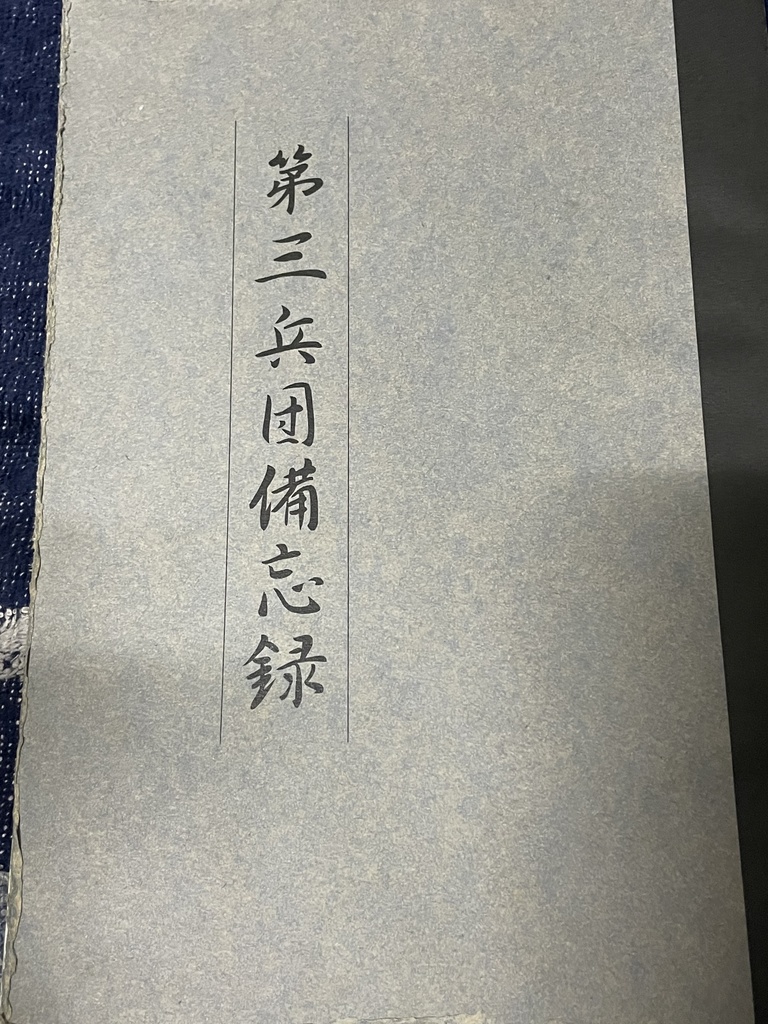 第三兵団備忘録